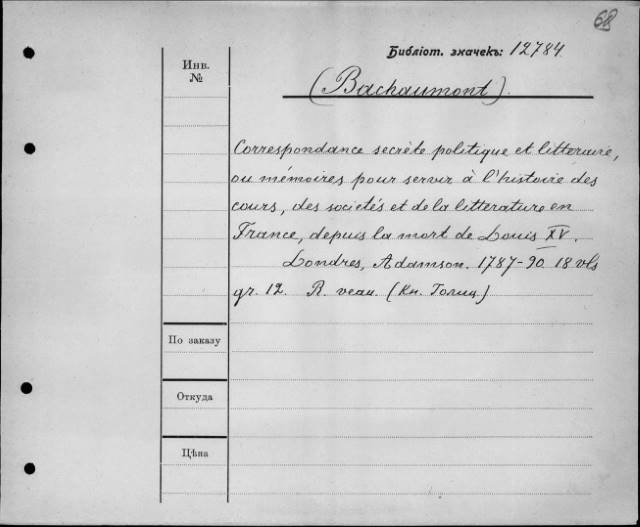 68
Библіот. значекъ: 12784
Инв. №
(Bachaumont).
Correspondance secrète politique et litteraire,
ou mémoires pour servir à l'histoire des
cours, des societés et de la litterature en
France, depuis la mort de Louis XV.
Londres, Adamson. 1787-90 18 vls
gr. 12. R. veau. (Кн. Голиц.)
По заказу
Откуда
Цѣна